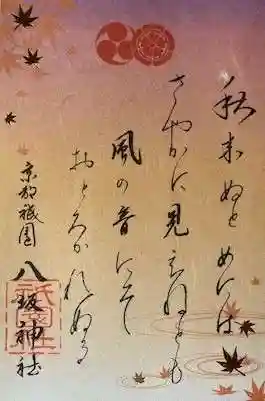 秋来ぬと めには
さやかに見えねども
風の音にぞ
おどろかれぬる
京都祇園 八坂神社